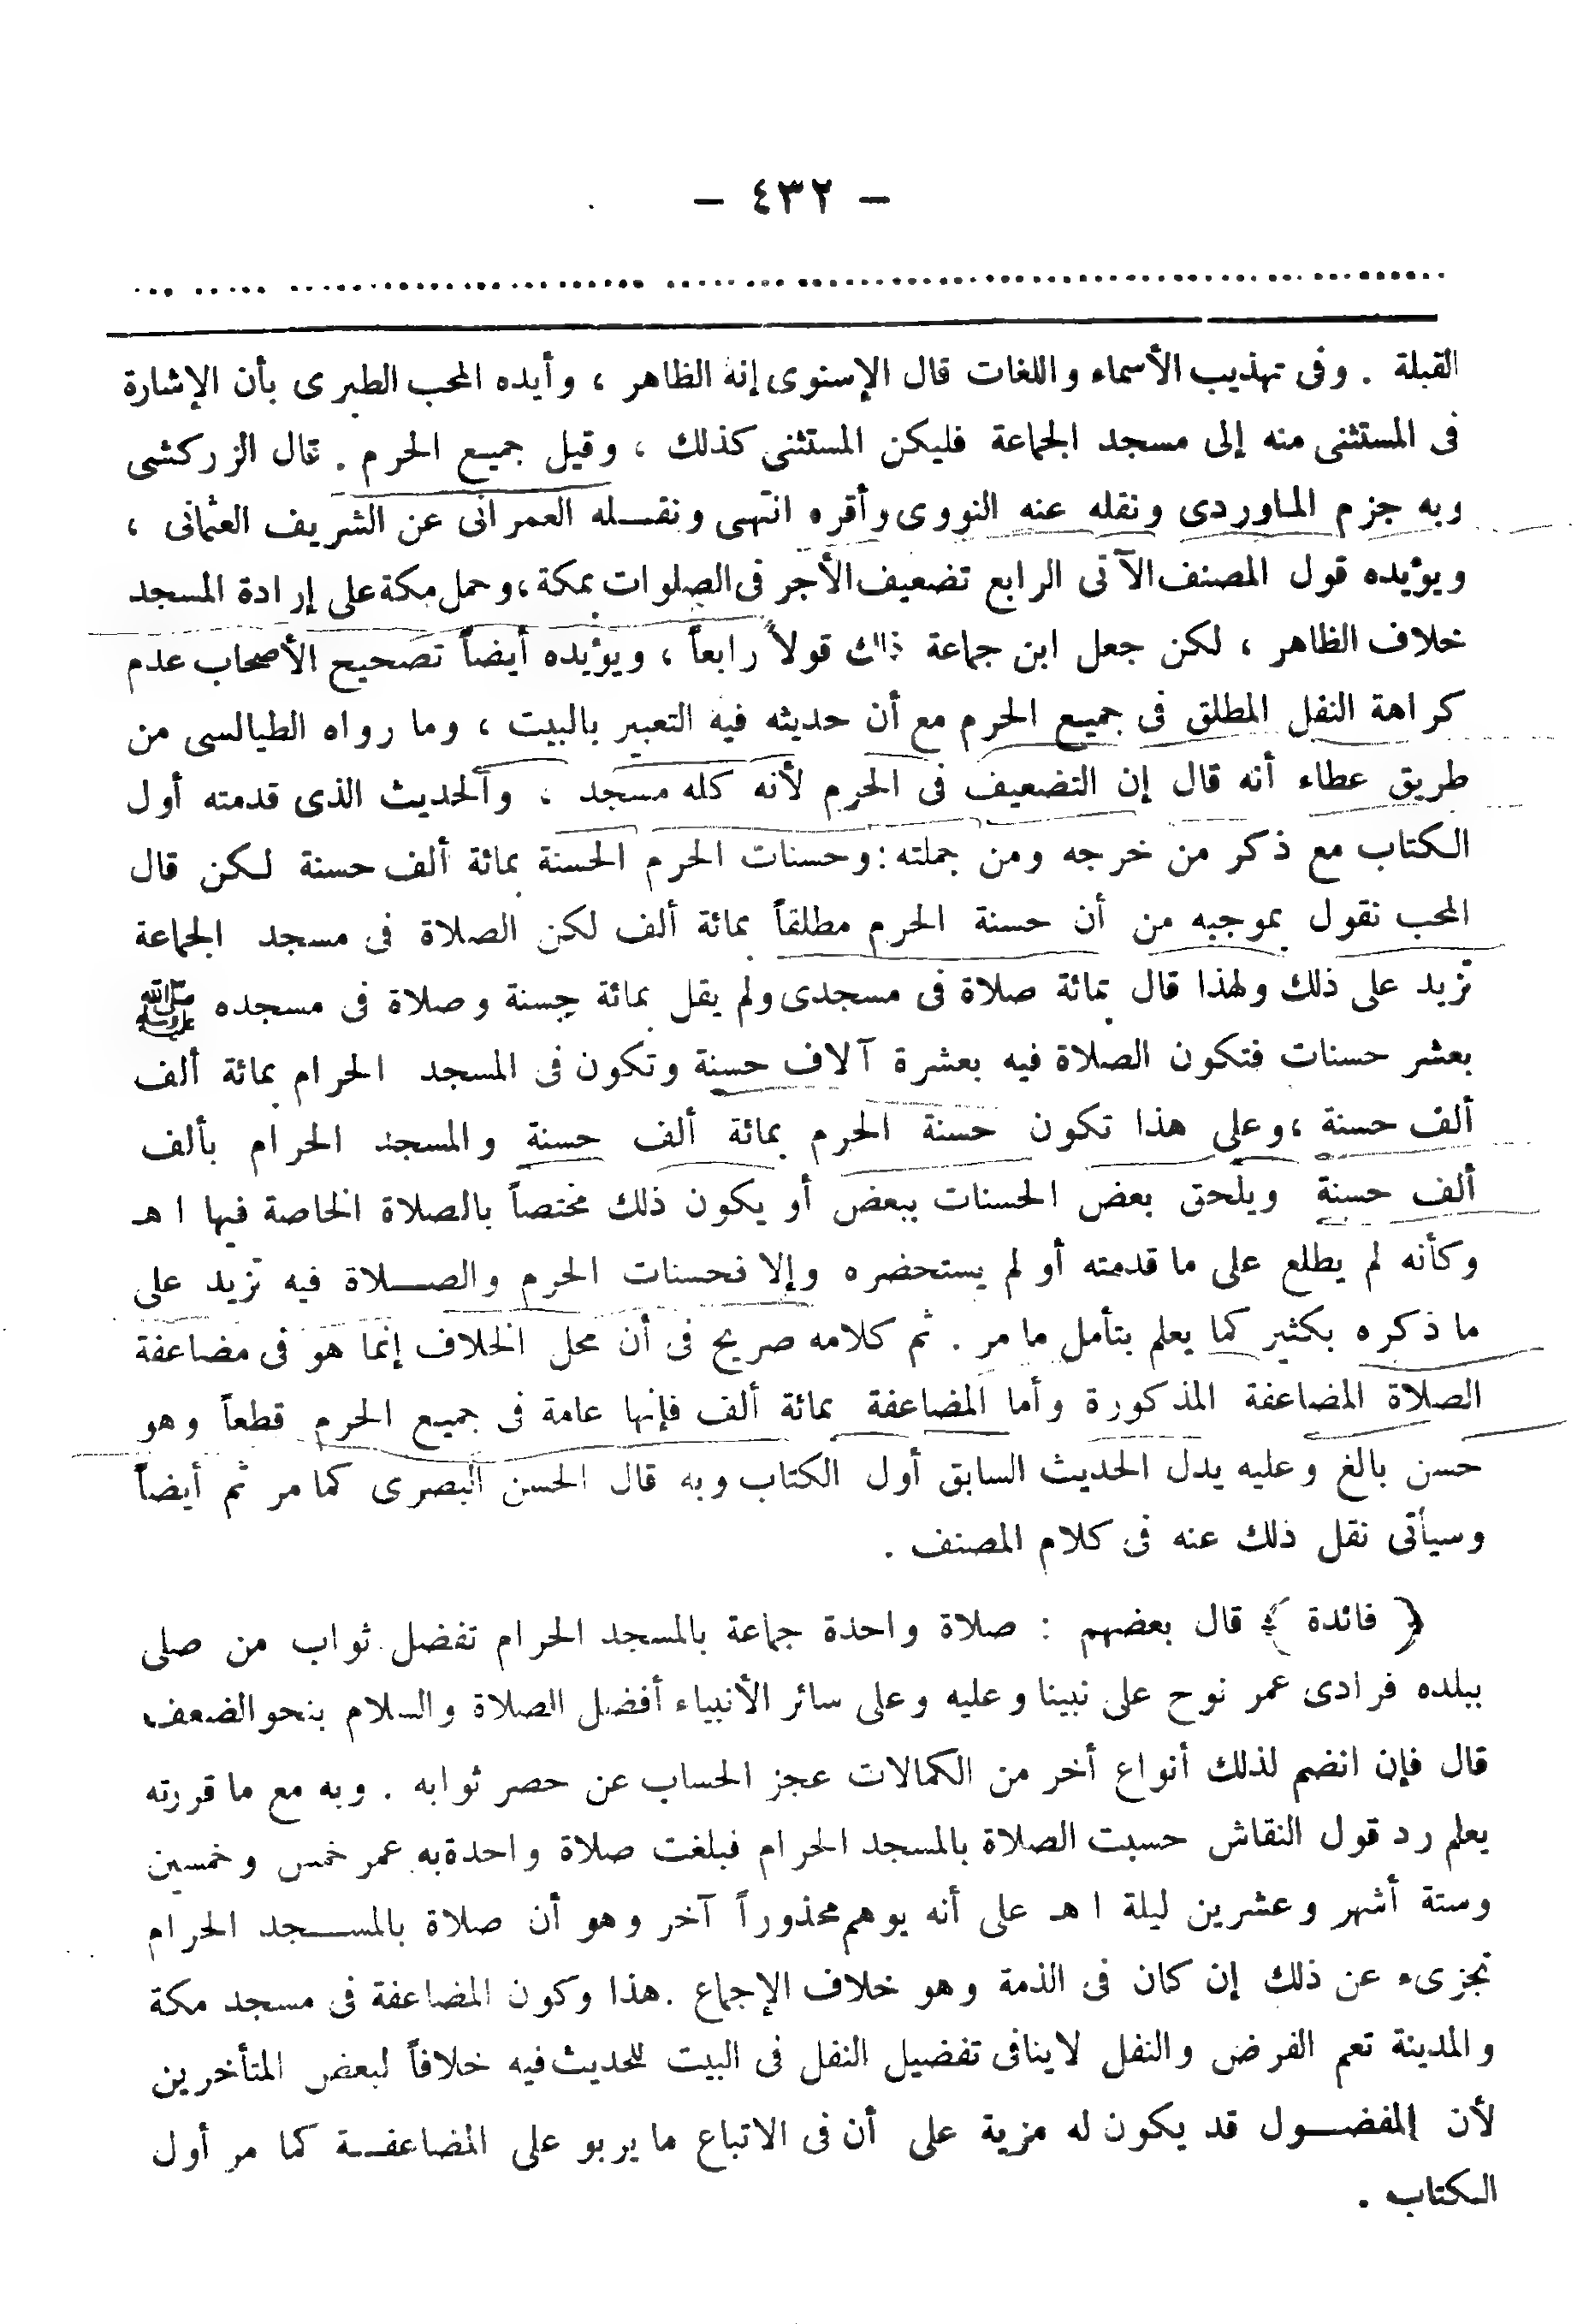 — ٤٣٢ —
القبلة . وفى تهذيب الأسماء واللغات قال الإسنوى إنه الظاهر ، وأيده المحب الطبرى بأن الإشارة
فى المستثنى منه إلى مسجد الجماعة فليكن المستثنى كذلك ، وقيل جميع الحرم . قال الزركشى
وبه جزم الماوردى ونقله عنه النووى وأقره انتهى ونقله العمرانى عن الشريف العثمانى ،
ويؤيده قول المصنف الآتى الرابع تضعيف الأجر فى الصلوات بمكة ، وحمل مكة على إرادة المسجد
خلاف الظاهر ، لكن جعل ابن جماعة ذلك قولاً رابعاً ، ويؤيده أيضاً تصحيح الأصحاب عدم
كراهة النفل المطلق فى جميع الحرم مع أن حديثه فيه التعبير بالبيت ، وما رواه الطيالسى من
طريق عطاء أنه قال إن التضعيف فى الحرم لأنه كله مسجد ، والحديث الذى قدمته أول
الكتاب مع ذكر من خرجه ومن جملته : وحسنات الحرم الحسنة بمائة ألف حسنة لكن قال
المحب نقول بموجبه من أن حسنة الحرم مطلقاً بمائة ألف لكن الصلاة فى مسجد الجماعة
تزيد على ذلك ولهذا قال بمائة صلاة فى مسجدى ولم يقل بمائة حسنة وصلاة فى مسجده ﷺ
بعشر حسنات فتكون الصلاة فيه بعشرة آلاف حسنة وتكون فى المسجد الحرام بمائة ألف
ألف حسنة ، وعلى هذا تكون حسنة الحرم بمائة ألف حسنة والمسجد الحرام بألف
ألف حسنة ويلحق بعض الحسنات ببعض أو يكون ذلك مختصاً بالصلاة الخاصة فيها ا هـ
وكأنه لم يطلع على ما قدمته أو لم يستحضره وإلا فحسنات الحرم والصلاة فيه تزيد على
ما ذكره بكثير كما يعلم بتأمل ما مر . ثم كلامه صريح فى أن محل الخلاف إنما هو فى مضاعفة
الصلاة المضاعفة المذكورة وأما المضاعفة بمائة ألف فإنها عامة فى جميع الحرم قطعاً وهو
حسن بالغ وعليه يدل الحديث السابق أول الكتاب وبه قال الحسن البصرى كما مر ثم أيضاً
وسيأتى نقل ذلك عنه فى كلام المصنف .
﴿ فائدة ﴾ قال بعضهم : صلاة واحدة جماعة بالمسجد الحرام تفضل ثواب من صلى
ببلده فرادى عمر نوح على نبينا وعليه وعلى سائر الأنبياء أفضل الصلاة والسلام بنحو الضعف
قال فإن انضم لذلك أنواع أخر من الكمالات عجز الحساب عن حصر ثوابه . وبه مع ما قررته
يعلم رد قول النقاش حسبت الصلاة بالمسجد الحرام فبلغت صلاة واحدة به عمر خمس وخمسين
وستة أشهر وعشرين ليلة ا هـ على أنه يوهم محذوراً آخر وهو أن صلاة بالمسجد الحرام
تجزىء عن ذلك إن كان فى الذمة وهو خلاف الإجماع . هذا وكون المضاعفة فى مسجد مكة
والمدينة تعم الفرض والنفل لاينافى تفضيل النفل فى البيت للحديث فيه خلافاً لبعض المتأخرين
لأن المفضول قد يكون له مزية على أن فى الاتباع ما يربو على المضاعفة كما مر أول
الكتاب .